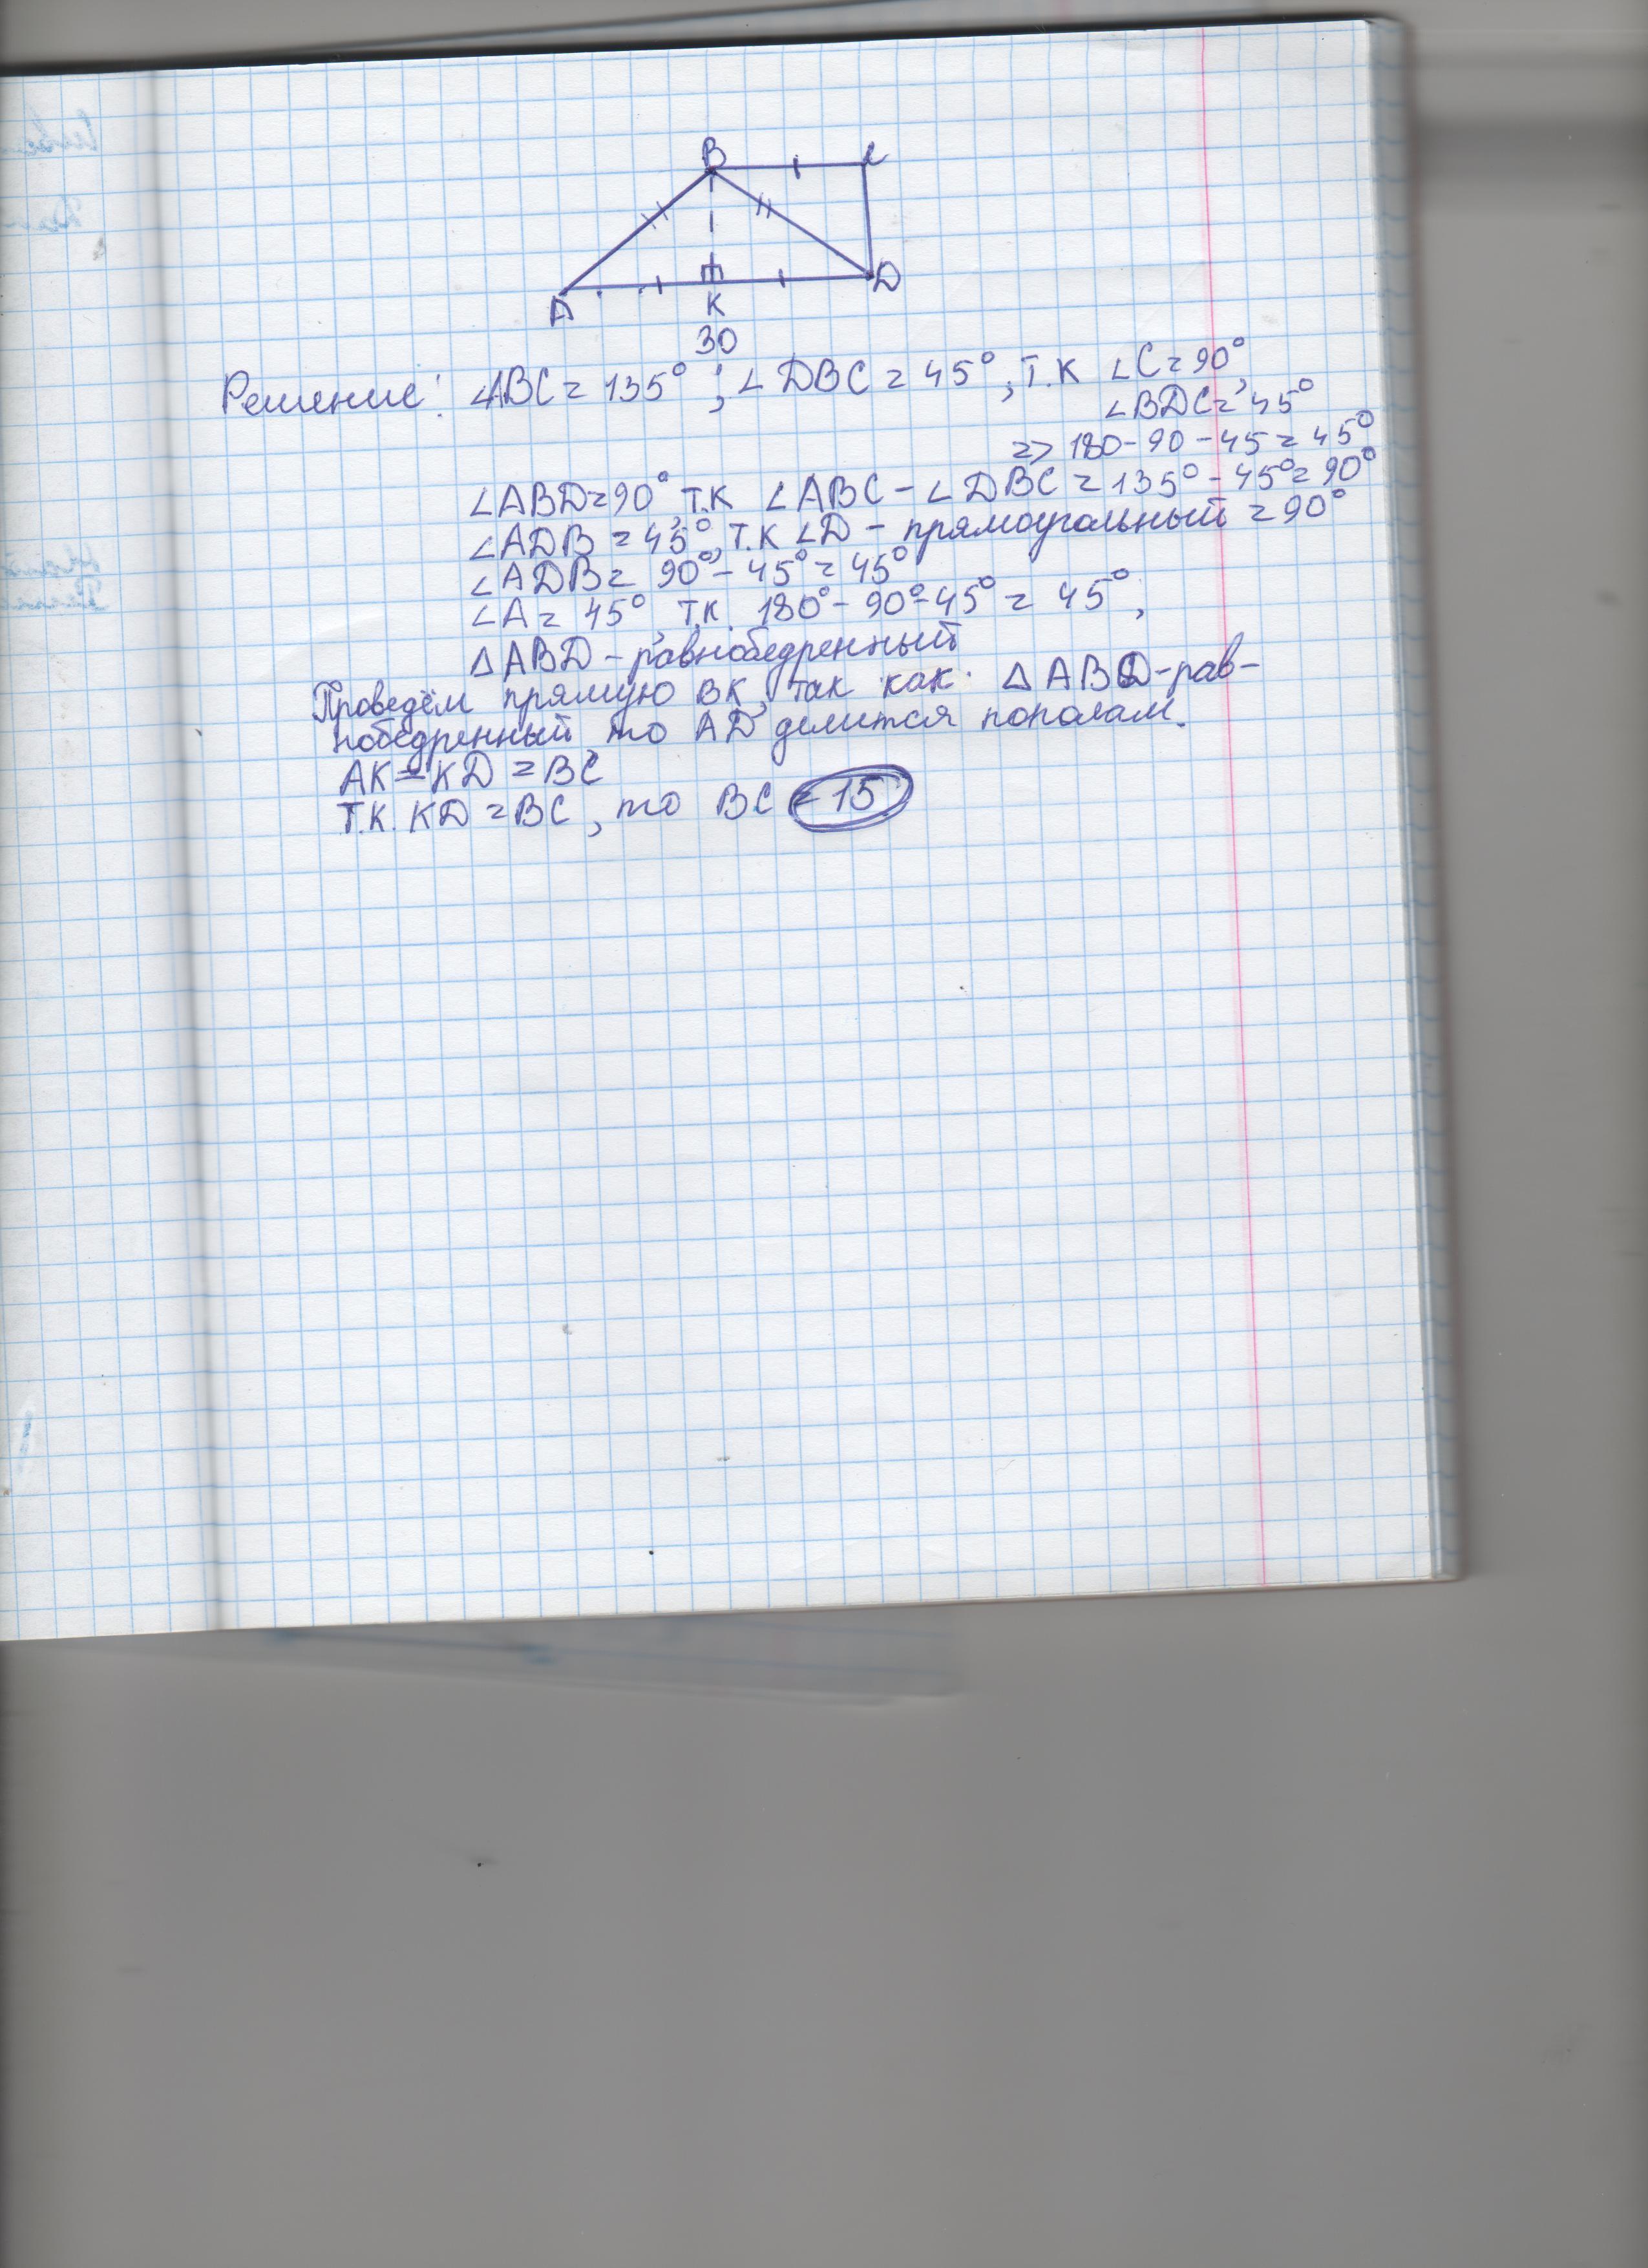 B C
A K D
30
Решение: ∠ABC = 135°; ∠DBC = 45°, т.к ∠C = 90°,
∠BDC = 45°
=> 180 - 90 - 45 = 45°
∠ABD = 90°, т.к ∠ABC - ∠DBC = 135° - 45° = 90°
∠ADB = 45°, т.к ∠D - прямоугольный = 90°
∠ADB = 90° - 45° = 45°
∠A = 45°, т.к. 180° - 90° - 45° = 45°;
△ABD - равнобедренный
Проведём прямую BK, так как △ABD - рав-
нобедренный, то AD делится пополам.
AK = KD = BC
Т.к. KD = BC, то BC = 15